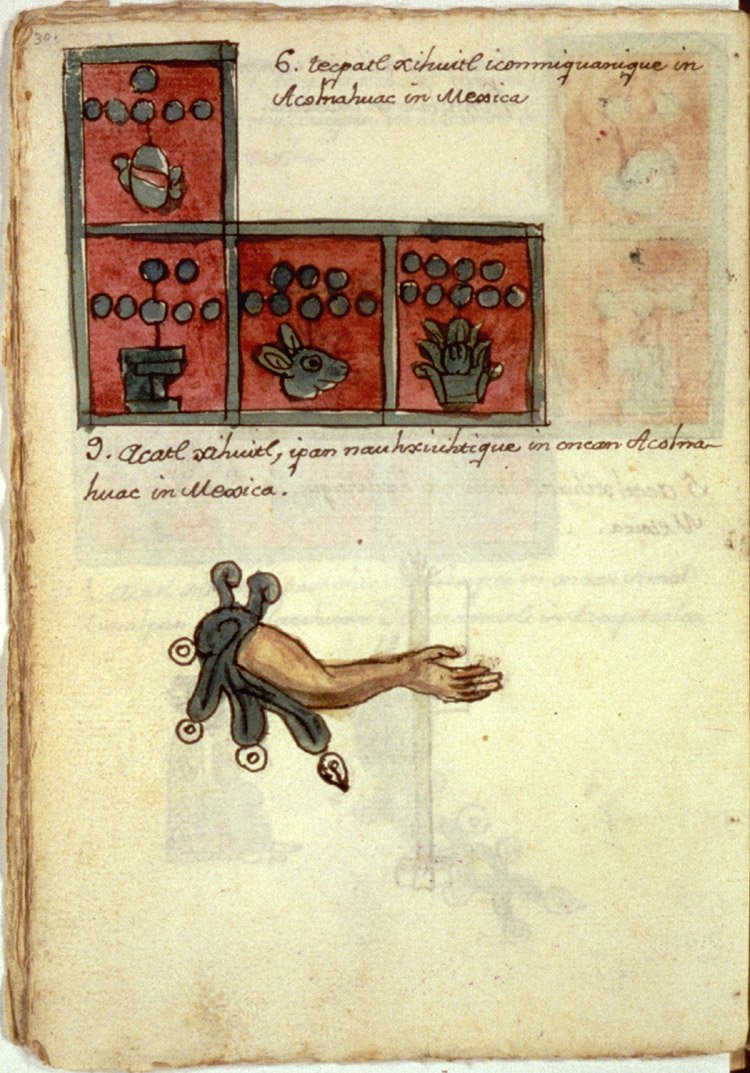 30.
6. tecpatl xihuitl iconmiquanique in
Acolnahuac in Mexica
9. Acatl xihuitl, ipan nauhxiuhtique in oncan Acolna-
huac in Mexica.